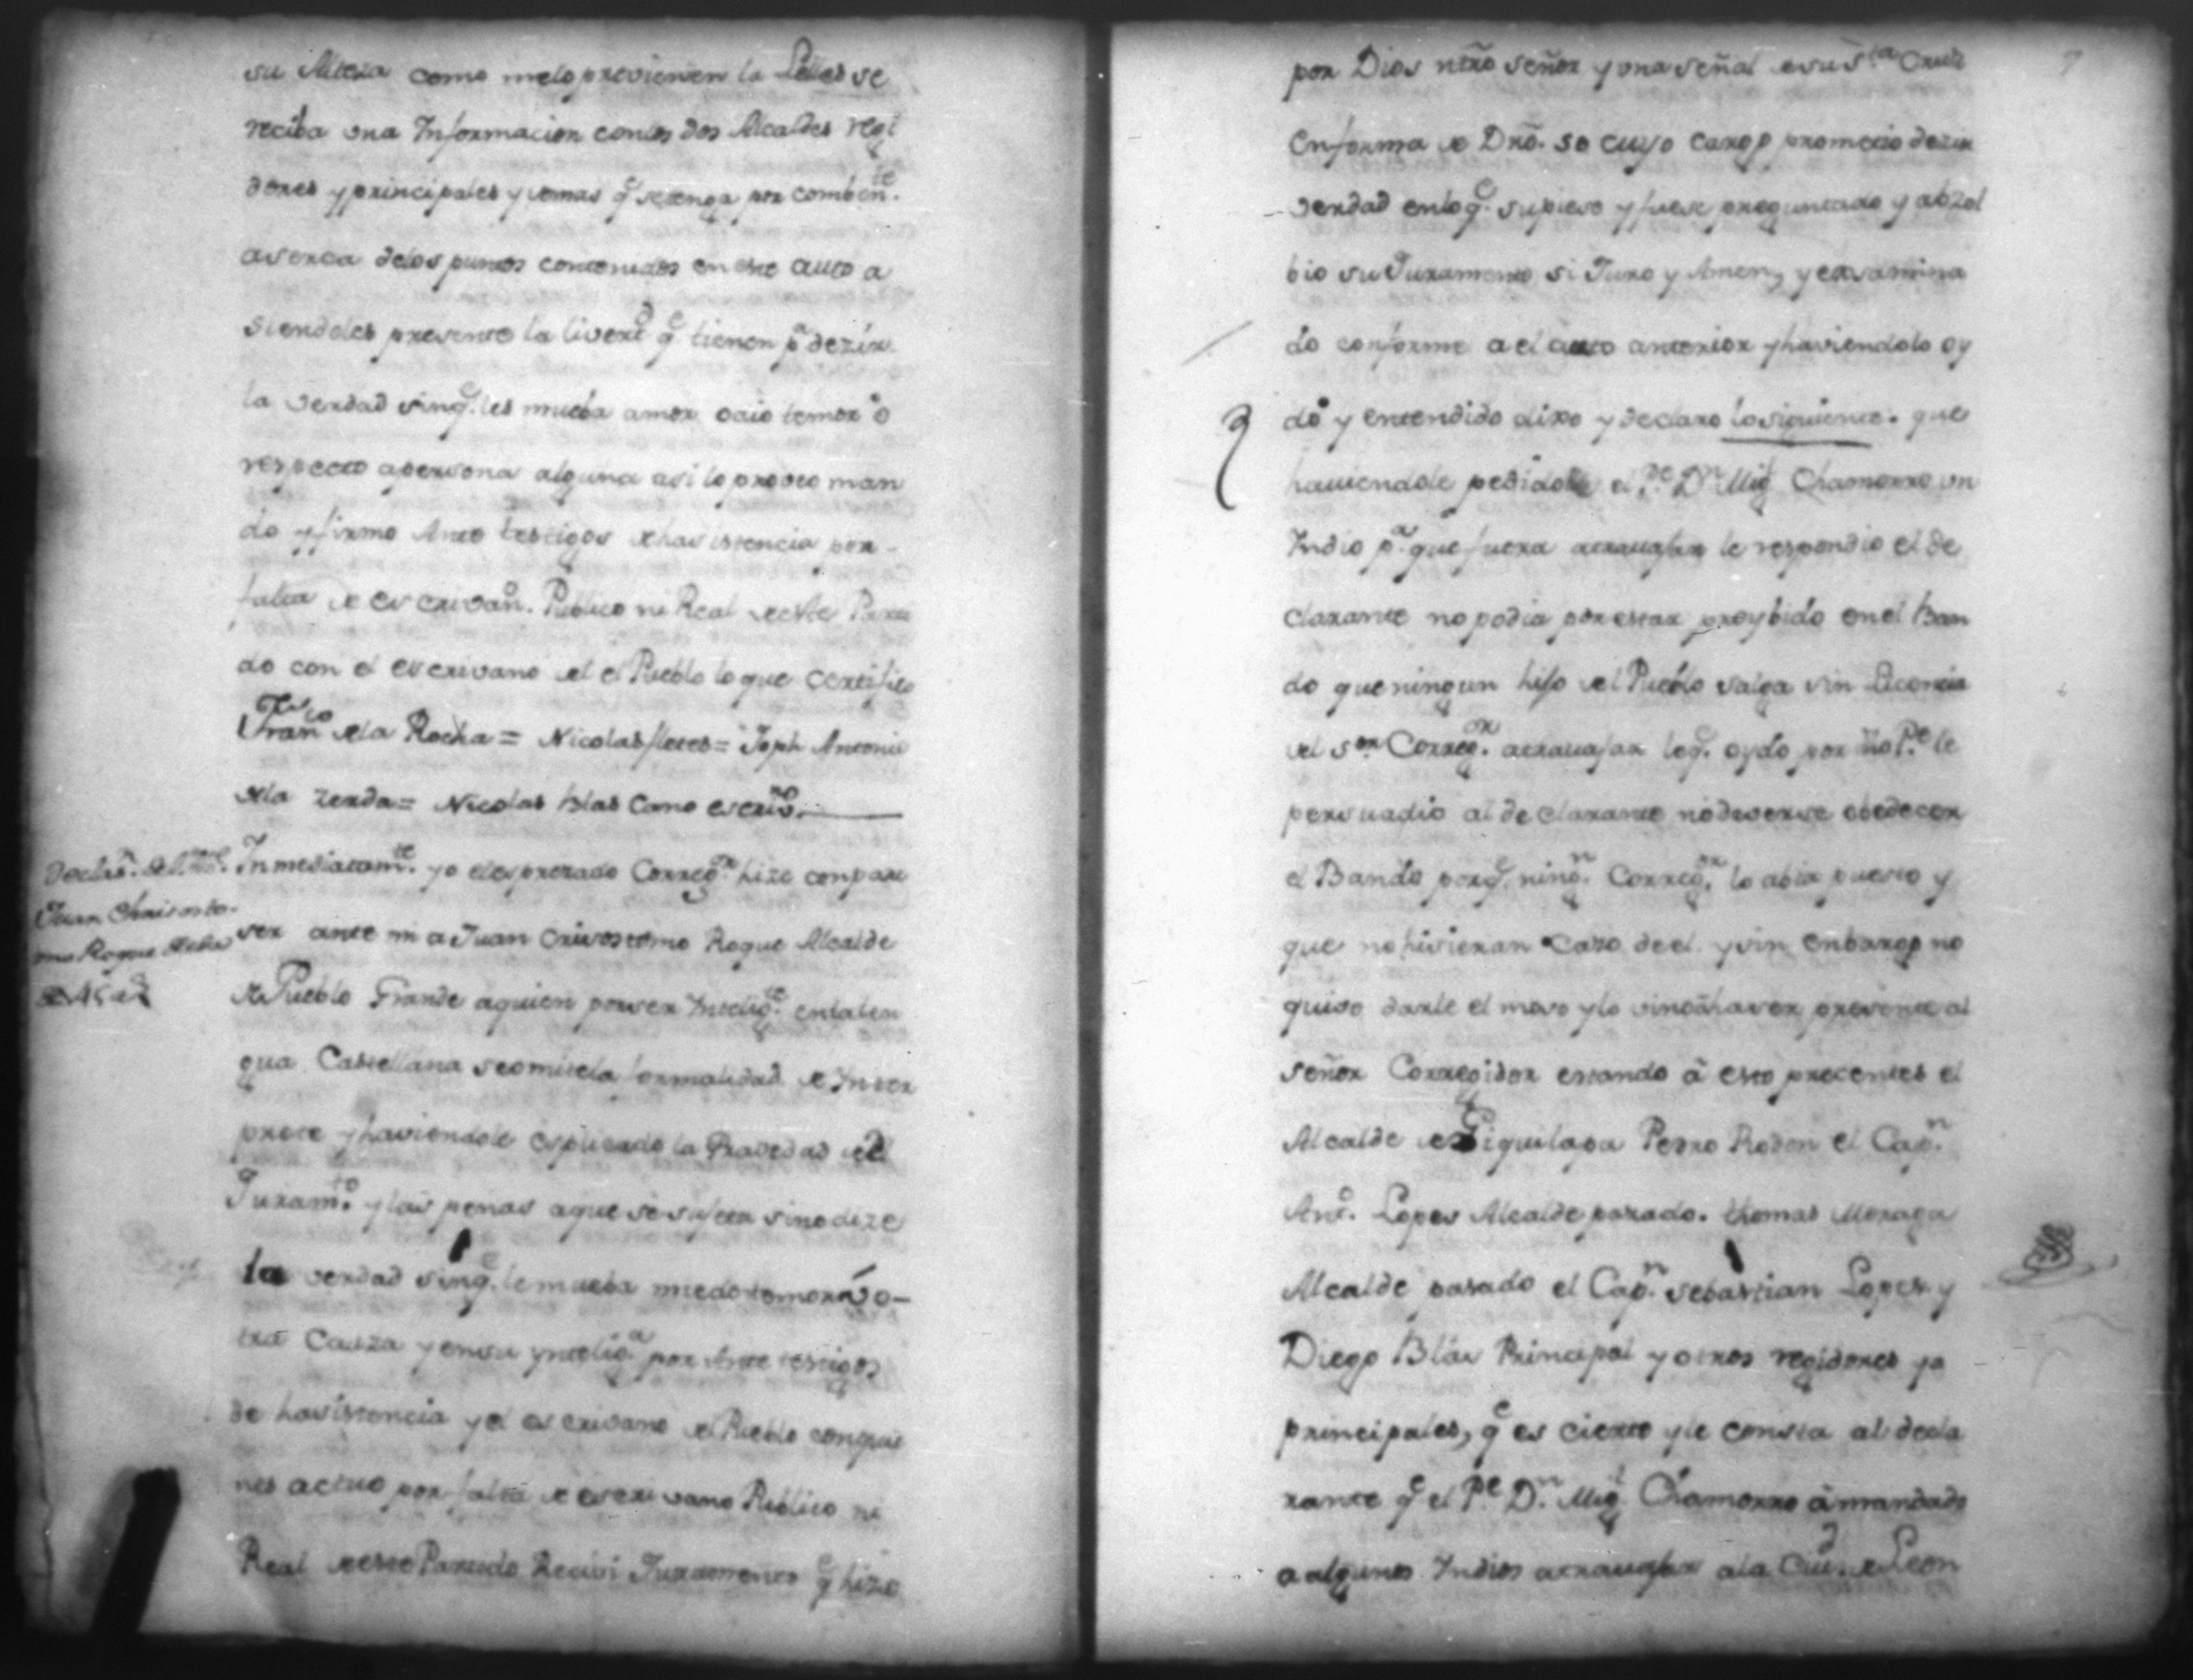 su Alteza como melo previenen la Lelles se
reciba una Informacion conlos dos Alcaldes regi
dores y principales y demas q.e se tenga por comben.te
aserca delos puntos contenidos en este auto a
siendoles presente la livert.d q.e tienen p.a dezir
la verdad sinq.e les mueba amor odio temor o
respecto apersona alguna asi lo proveo man
do y firmo Ante testigos de hasistencia por
falta de escrivan.o Publico ni Real de este Parti
do con el escrivano del el Pueblo lo que certifico
Fran.co de la Rocha = Nicolas fletes = Joph Antonio
dela Zerda = Nicolas Blas Cano escriv.no
Declar.n del Alc.de
Juan Chrisosto-
mo Roque dela
Inmediatam.te yo el espresado Correg.or hize conpare
ser ante mi a Juan Crisostomo Roque Alcalde
de Pueblo Grande aquien por ser Intelig.te enlalen
gua Castellana se omite la formalidad de Inter
prete y haviendole esplicado la Gravedad del
Juram.to y las penas aque se sujeta sino dize
la verdad sinq.e le mueba miedo temor ó o-
tra Causa y en su yntelig.a por Ante testigos
de hasistencia y el escrivano del Pueblo conquie
nes actuo por falta de escrivano Publico ni
Real de este Partido Recivi Juramento q.e hizo
por Dios ntro señor y una señal de su S.ta Cruz
Enforma de Dro. so cuyo cargo prometio dezir
verdad enlo q.e supiese y fuese preguntado y abzol
bio su Juramento si Juro y Amen, y exsamina
do conforme a el auto anterior y haviendolo oy
do y entendido dixo y declaro lo siguiente. que
haviendole pedido el P.e D.n Mig.l Chamorro un
Indio p.a que fuera atrauajar le respondio el de
clarante no podia por estar proybido en el Ban
do que ningun hijo del Pueblo salga sin Licencia
del s.or Correg.or atrauajar loq.e oydo por dho P.e le
persuadio al declarante no deverse obedecer
el Bando porq.e ning.n Correg.or lo abia puesto y
que no hisieran cazo de el y sin enbargo no
quiso darle el moso y lo vino á haser presente al
señor Corregidor estando á esto precentes el
Alcalde de Giquilapa Pedro Rodon el Cap.n
Ant.o Lopes Alcalde pasado. thomas Moraga
Alcalde pasado el Cap.n sebastian Lopes y
Diego Blás Principal y otros regidores ya
principales, q.e es cierto y le consta al decla
rante q.e el P.e D.n Mig.l Chamorro á mandado
a algunos Indios atrauajar ala Ciu.d de Leon